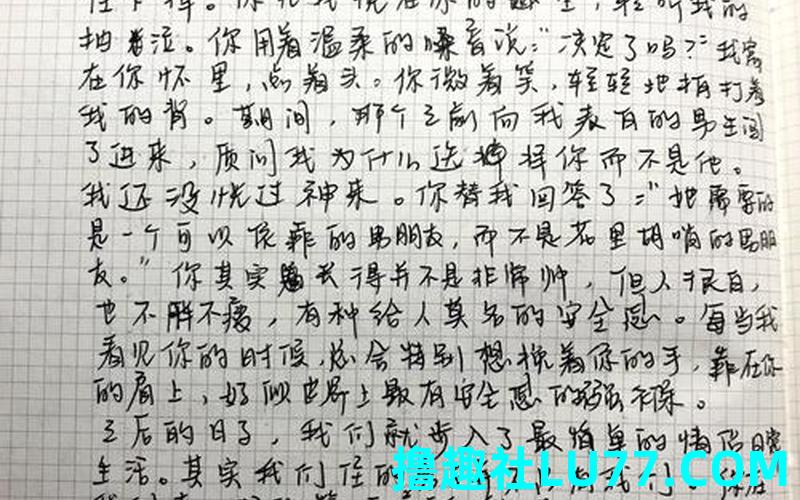 抽泣。你用着温柔的嗓音说:"决定了吗?"我窝
在你怀里,点着头。你微着笑,轻轻地拍打着
我的背。期间,那个之前向我表白的男生闯
了进来,质问我为什么选择你而不是他。
我还没恍过神来。你替我回答了:"她需要的
是一个可以依靠的男朋友,而不是花里胡哨的男朋
友。"你其实长得并不是非常帅,但人很白,
也不胖不瘦,有种给人莫名的安全感。每当我
看见你的时候,总会特别想挽着你的手,靠在你
的肩上,好似世界上最有安全感的
之后的日子,我们就步入了最简单的情侣日常
生活。其实我们住的
撸趣社LU77.COM